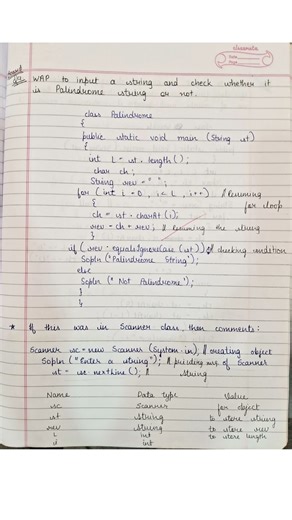 classmate
Date
Page
WAP to input a string and check whether it
is Palindrome string or not.
class Palindrome
{
public static void main (String st)
{
int L = st. length ();
char ch;
String rev = " ";
for (int i = 0, i < L, i++) // Running
for loop
{
ch = st. charAt (i);
rev = ch + rev; // Reversing the string
}
if (rev. equalsIgnoreCase (st)) // checking condition
Sopln ("Palindrome String");
else
Sopln (" Not Palindrome");
}
}
* If this was in Scanner class, then comments:
Scanner sc = new Scanner (System.in); // creating object
Sopln ("Enter a string"); // printing msg of Scanner
st = sc. nextline (); // String
Name Data type Value
sc Scanner for object
st String to store string
rev String to store rev
L int to store length
i int